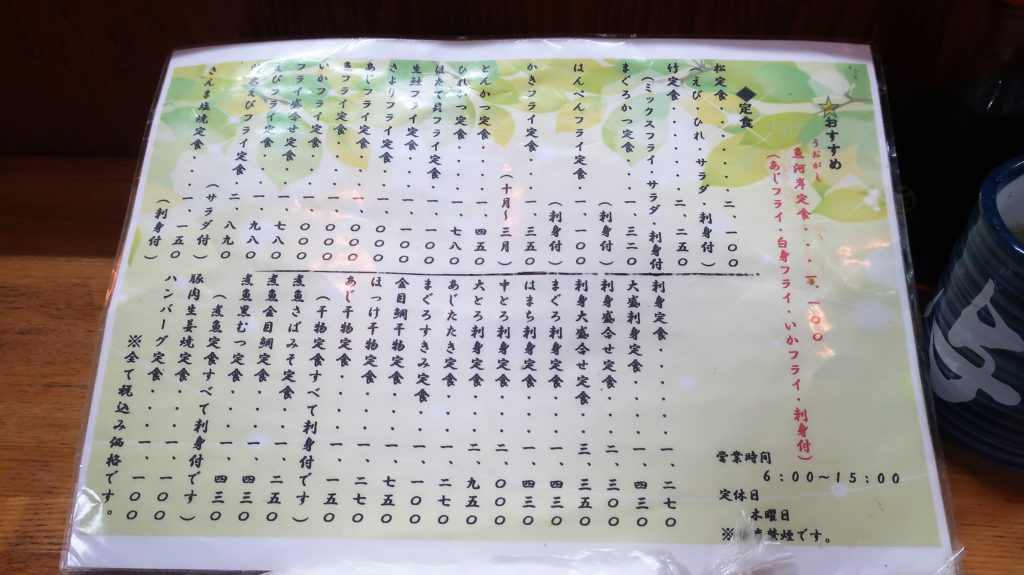 ☆おすすめ
うおがし
魚河岸定食・・・一、一〇〇
(あじフライ・白身フライ・いかフライ・刺身付)
◆定食
松定食・・・・・・二、一〇〇
(えび・ひれ サラダ・刺身付)
竹定食・・・・・・二、二五〇
(ミックスフライ・サラダ・刺身付)
まぐろかつ定食・・・一、三二〇
(刺身付)
はんぺんフライ定食・・一、
(刺身付)
かきフライ定食・・・一、三五〇
(十月〜三月)
とんかつ定食・・・・一、四五〇
ひれかつ定食・・・・一、七八〇
ほたて貝フライ定食・一、一〇〇
生鮭フライ定食・・・一、一〇〇
さよりフライ定食・・一、〇〇〇
あじフライ定食・・・一、〇〇〇
魚フライ定食・・・・一、〇〇〇
いかフライ定食・・・一、〇〇〇
フライ盛合せ定食・・一、七八〇
えびフライ定食・・・一、九八〇
えびフライ定食・二、八九〇
(サラダ付)
さんま塩焼定食・・・一、一五〇
(刺身付)
刺身定食・・・・・一、二七〇
大盛刺身定食・・・一、四三〇
刺身盛合せ定食・・二、
刺身大盛合せ定食・三、三五〇
まぐろ刺身定食・・一、四三〇
はまち刺身定食・・一、四三〇
中とろ刺身定食・・二、〇〇〇
大とろ刺身定食・・二、九五〇
あじたたき定食・・一、
まぐろすきみ定食・一、一〇〇
金目鯛干物定食・・一、七五〇
ほっけ干物定食・・一、二七〇
あじ干物定食・・・一、一五〇
(干物定食すべて刺身付です)
煮魚さばみそ定食・一、二五〇
煮魚金目鯛定食・・一、四三〇
煮魚黒むつ定食・・一、四三〇
(煮魚定食すべて刺身付です)
豚肉生姜焼定食・・一、一〇〇
ハンバーグ定食・・一、一〇〇
※全て税込み価格です。
営業時間
6:00〜15:00
定休日
木曜日
禁煙です。